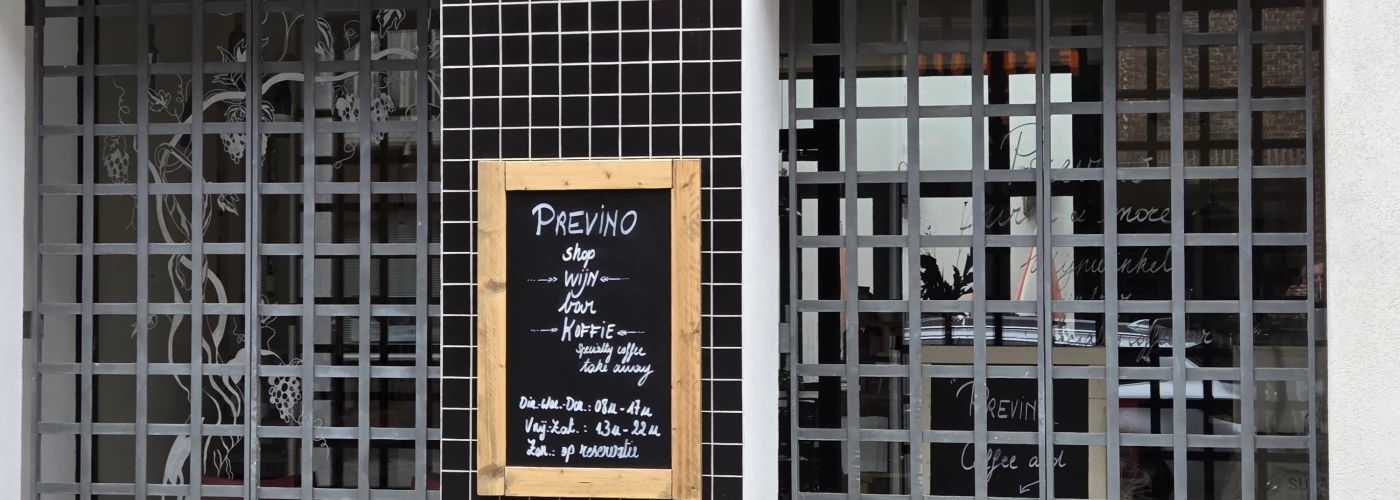 PREVINO
shop
WIJN
bar
KOFFIE
Specialty coffee
take away
Din.-Woe.-Don.: 08u - 17u
Vrij-Zat.: 13u - 22u
Zon.: op reservatie
& more
wijnwinkel
"PREVIN
Coffee and